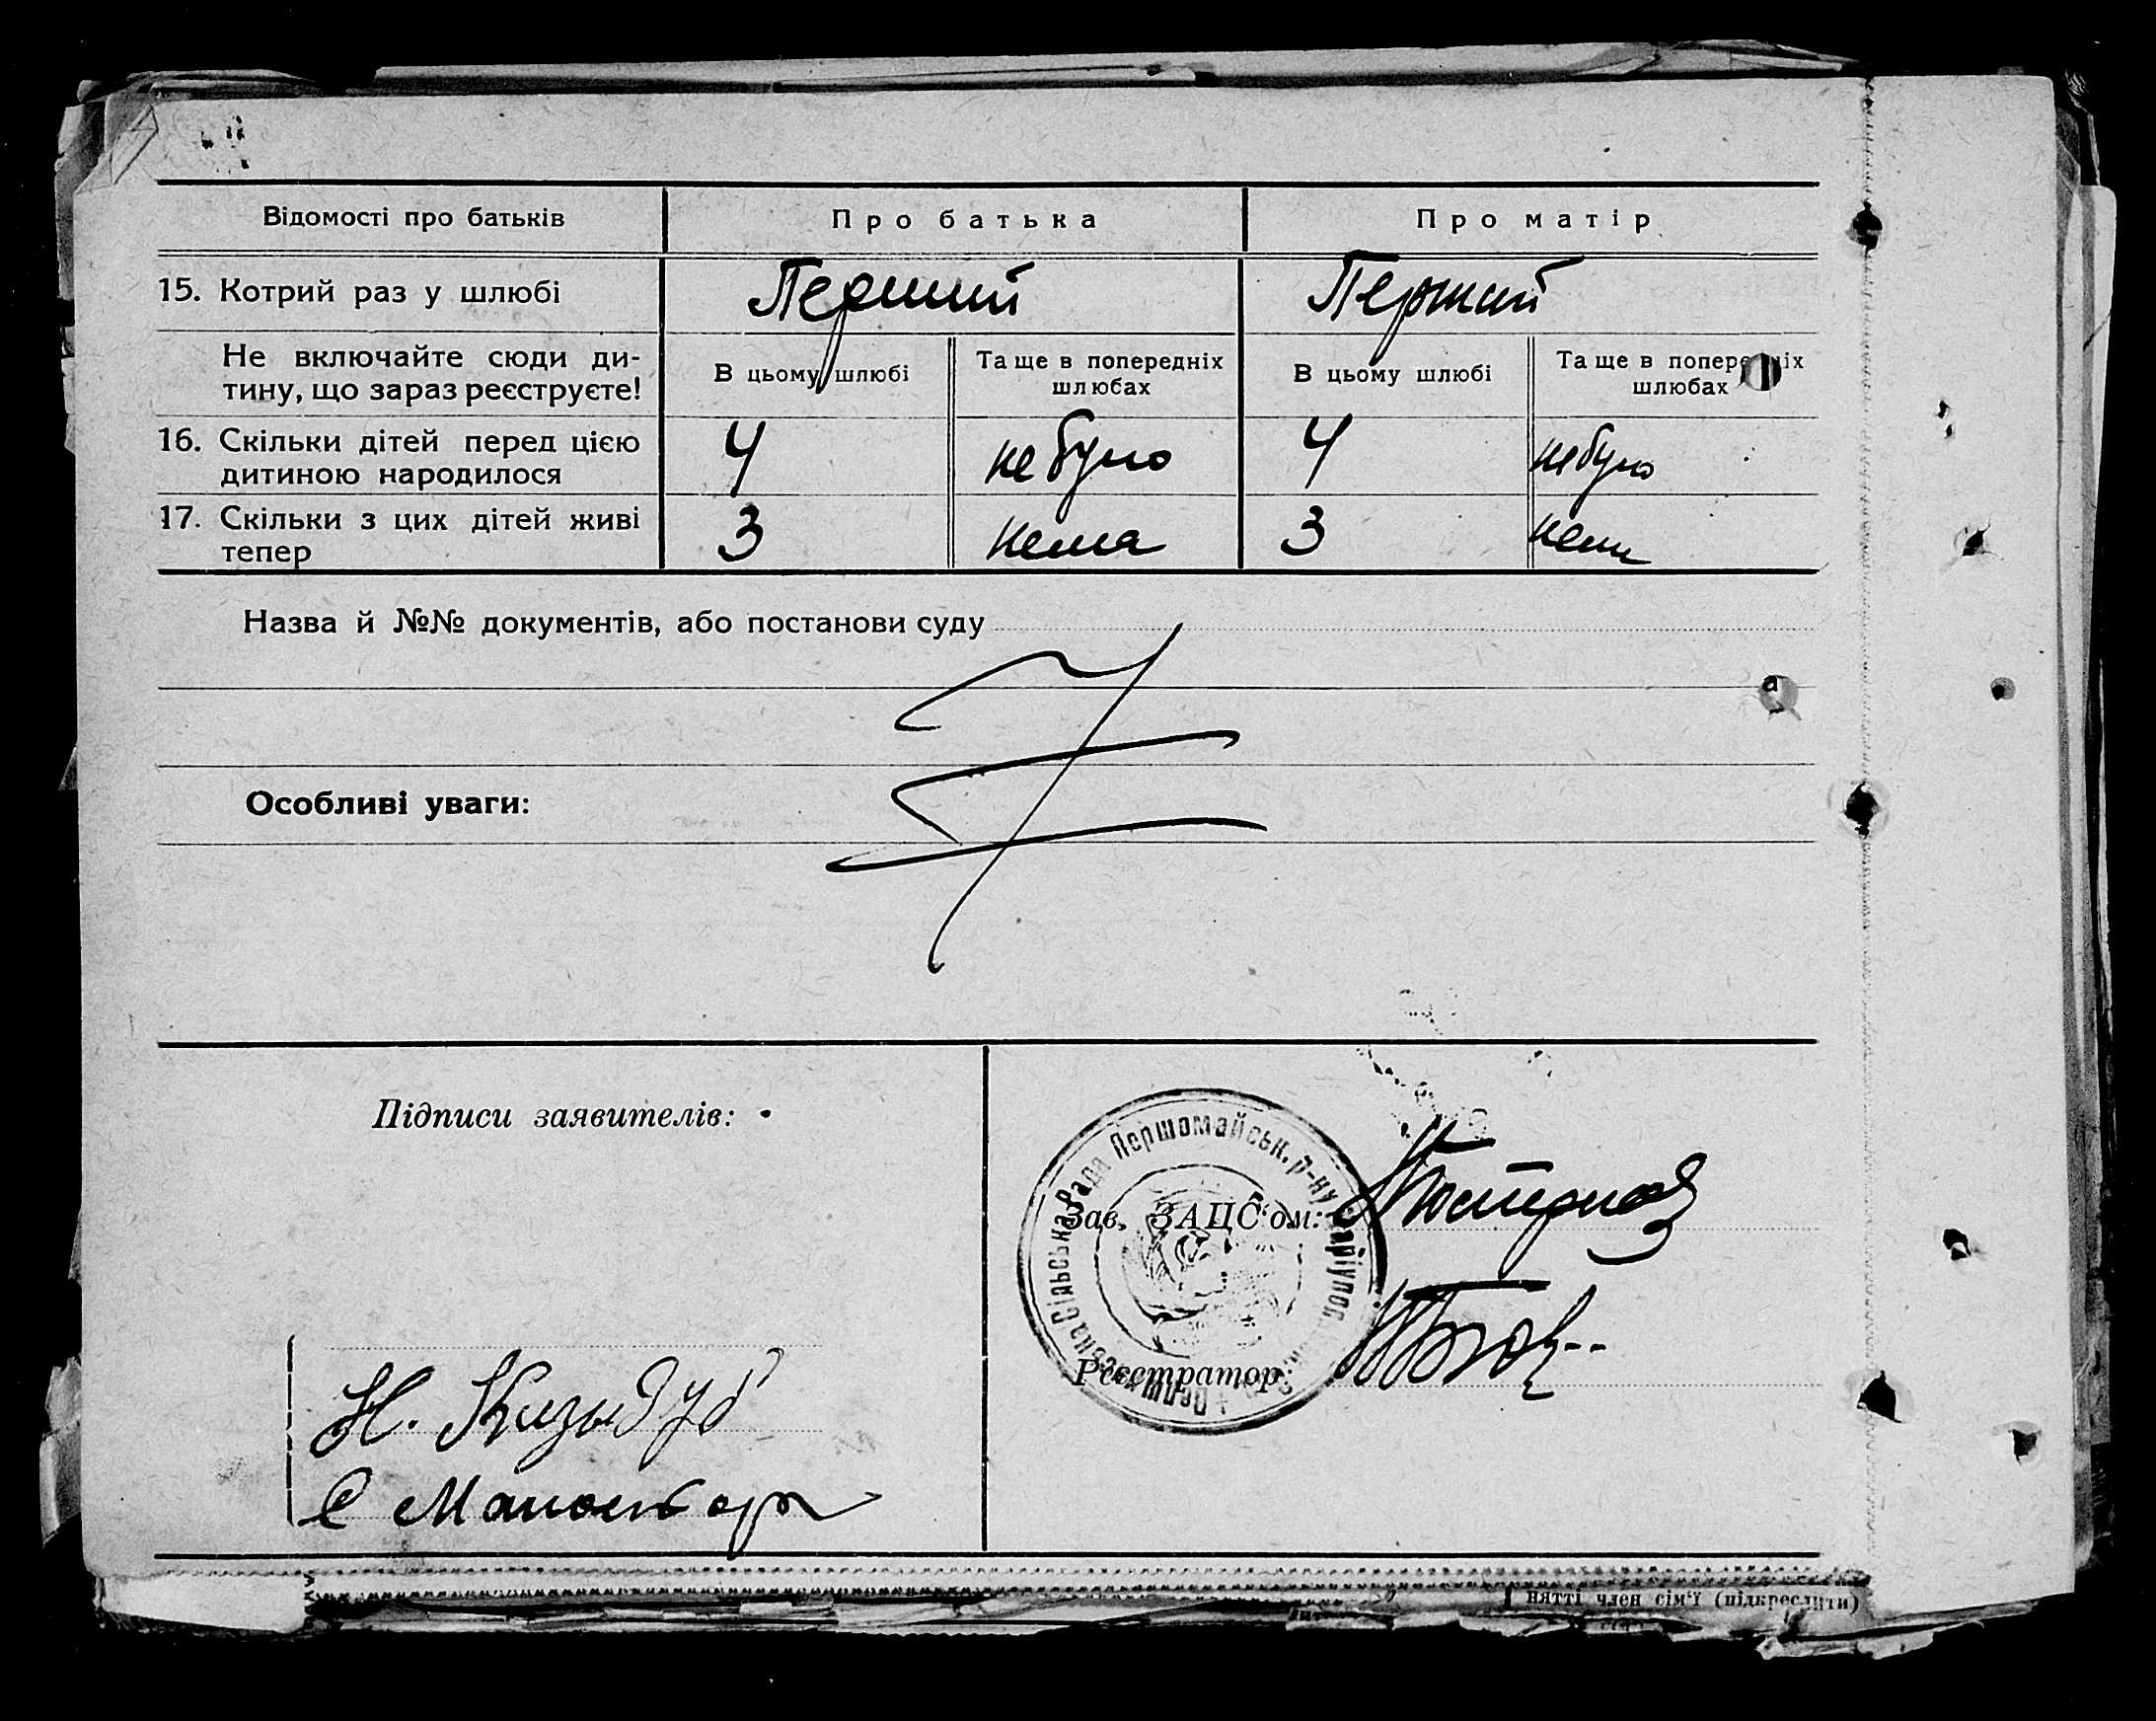 Відомості про батьків Про батька Про матір
15. Котрий раз у шлюбі Перший Перший
Не включайте сюди ди-
тину, що зараз реєструєте!
В цьому шлюбі
Та ще в попередніх
шлюбах
В цьому шлюбі
Та ще в попередніх
шлюбах
16. Скільки дітей перед цією
дитиною народилося
4 не було 4 не було
17. Скільки з цих дітей живі
тепер
3 нема 3 нема
Назва й №№ документів, або постанови суду
Z
Особливі уваги:
Підписи заявителів:
Н. Кизыдуб
С
Сільська Рада Першомайськ. р-ну
Зав. ЗАЦС'ом:
Реєстратор:
нятті член сім'ї (підкреслити)